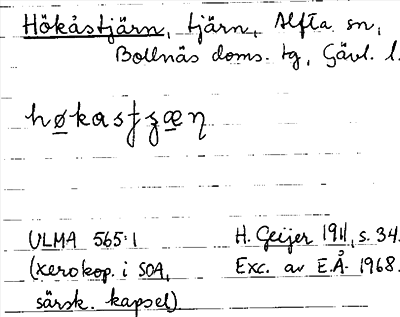 Hökåstjärn, tjärn, Alfta sn,
Bollnäs doms. tg, Gävl. l.
hø̲kasʈʒæ̲ɳ
ULMA 565:1
(xerokop. i SOA,
särsk. kapsel)
H. Geijer 1911, s. 34.
Exc. av E.Å. 1968.